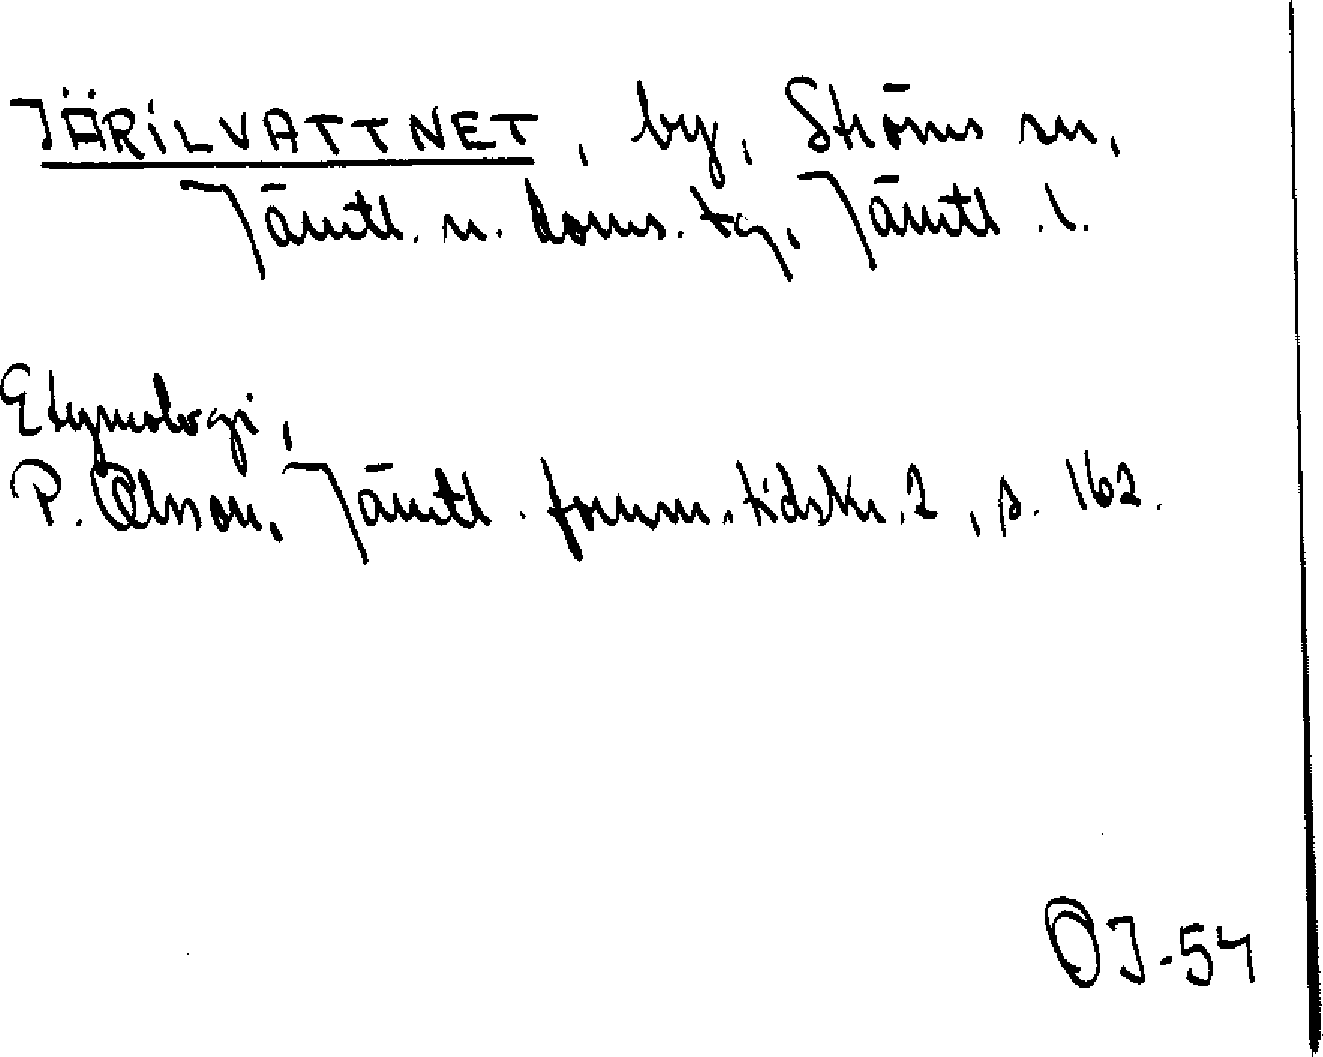 JÄRILVATTNET, by, Ströms sn,
Jämtl. n. doms. tg, Jämtl. l.
Etymologi,
P. Olsson, Jämtl. fornm. tidskr. 2, s. 162.
OJ-54